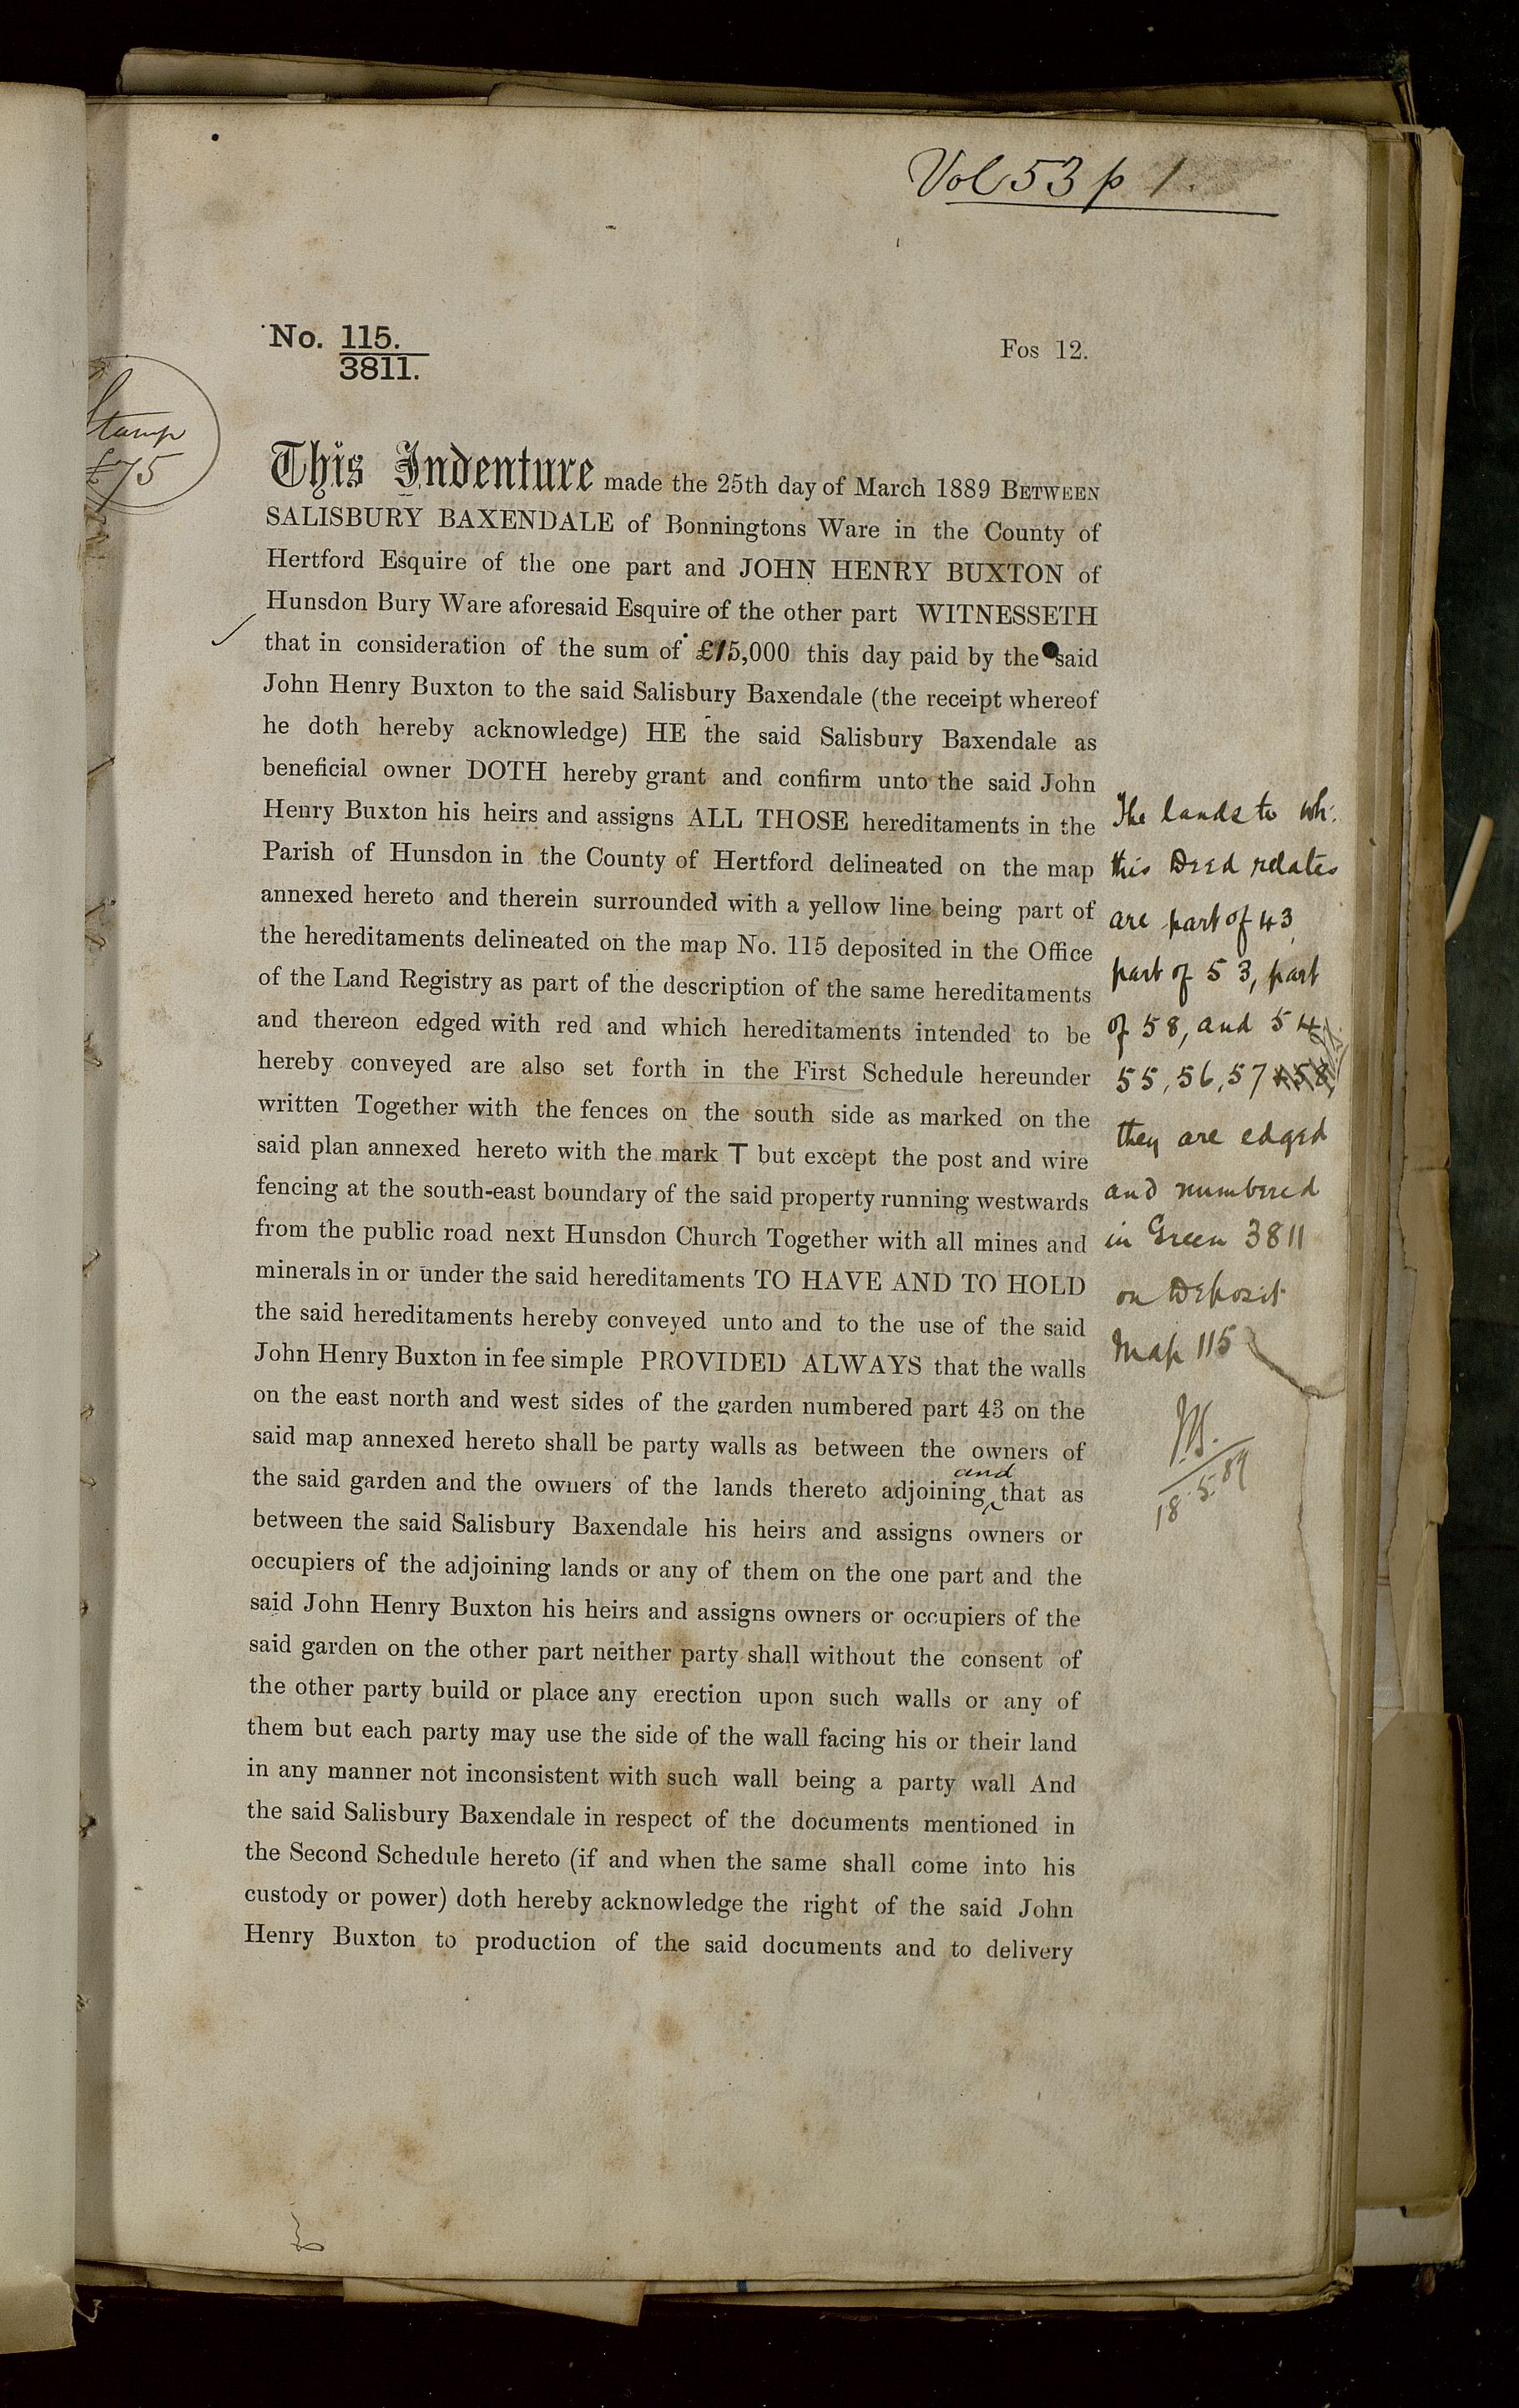 Vol 53 p 1.
No. 115.
3811.
Fos 12.
Stamp
£75
This Indenture made the 25th day of March 1889 BETWEEN
SALISBURY BAXENDALE of Bonningtons Ware in the County of
Hertford Esquire of the one part and JOHN HENRY BUXTON of
Hunsdon Bury Ware aforesaid Esquire of the other part WITNESSETH
that in consideration of the sum of £15,000 this day paid by the said
John Henry Buxton to the said Salisbury Baxendale (the receipt whereof
he doth hereby acknowledge) HE the said Salisbury Baxendale as
beneficial owner DOTH hereby grant and confirm unto the said John
Henry Buxton his heirs and assigns ALL THOSE hereditaments in the
Parish of Hunsdon in the County of Hertford delineated on the map
annexed hereto and therein surrounded with a yellow line being part of
the hereditaments delineated on the map No. 115 deposited in the Office
of the Land Registry as part of the description of the same hereditaments
and thereon edged with red and which hereditaments intended to be
hereby conveyed are also set forth in the First Schedule hereunder
written Together with the fences on the south side as marked on the
said plan annexed hereto with the mark T but except the post and wire
fencing at the south-east boundary of the said property running westwards
from the public road next Hunsdon Church Together with all mines and
minerals in or under the said hereditaments TO HAVE AND TO HOLD
the said hereditaments hereby conveyed unto and to the use of the said
John Henry Buxton in fee simple PROVIDED ALWAYS that the walls
on the east north and west sides of the garden numbered part 43 on the
said map annexed hereto shall be party walls as between the owners of
the said garden and the owners of the lands thereto adjoining and that as
between the said Salisbury Baxendale his heirs and assigns owners or
occupiers of the adjoining lands or any of them on the one part and the
said John Henry Buxton his heirs and assigns owners or occupiers of the
said garden on the other part neither party shall without the consent of
the other party build or place any erection upon such walls or any of
them but each party may use the side of the wall facing his or their land
in any manner not inconsistent with such wall being a party wall And
the said Salisbury Baxendale in respect of the documents mentioned in
the Second Schedule hereto (if and when the same shall come into his
custody or power) doth hereby acknowledge the right of the said John
Henry Buxton to production of the said documents and to delivery
The lands to wh:
this Deed relates
are part of 43,
part of 53, part
of 58, and 54,
55, 56, 57 & 58,
they are edged
and numbered
in Green 3811
on Deposit
Map 115
18.5.89